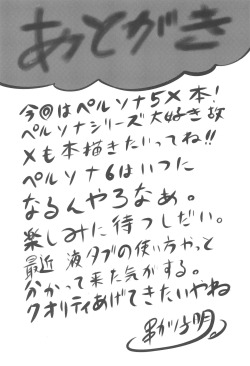 あとがき
今回はペルソナ5X本!
ペルソナシリーズ大好き故
Xも本描きたいってね!!
ペルソナ6はいつに
なるんやろなぁ。
楽しみに待つしだい。
最近 液タブの使い方やっと
分かって来た気がする。
クオリティあげてきたいやね
串がは明。